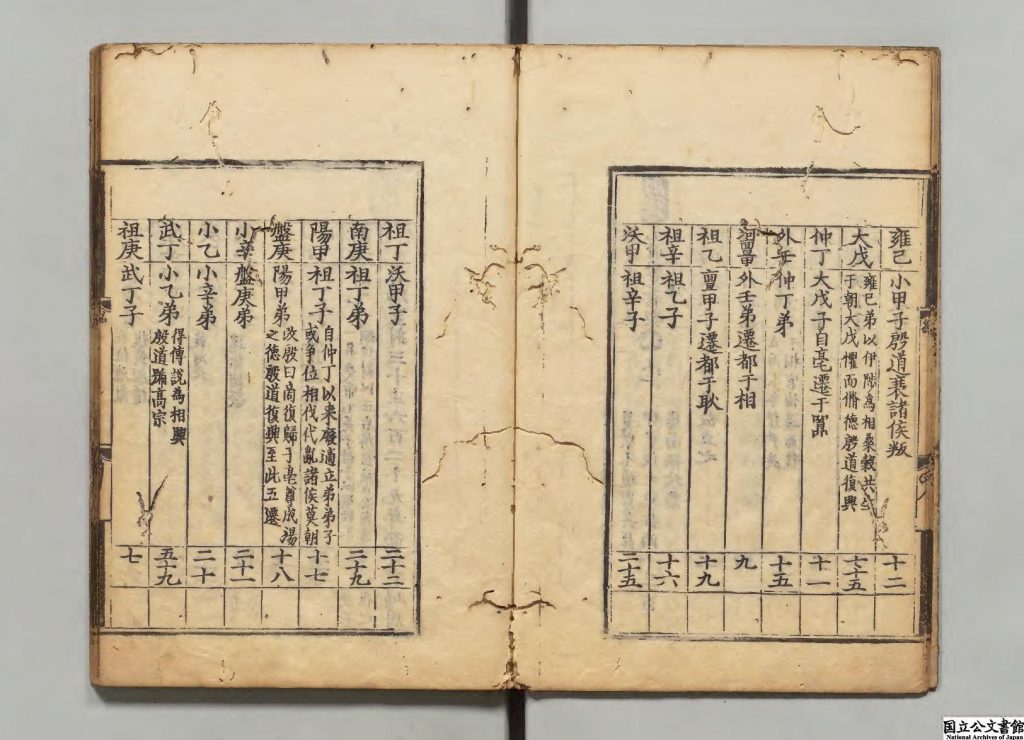 雍己 小甲子殷道衰諸侯叛 十二
大戊 雍己弟以伊陟為相桑穀共生
于朝大戊懼而脩德殷道復興 七十五
仲丁 大戊子自亳遷于囂 十一
外壬 仲丁弟 十五
河亶甲 外壬弟遷都于相 九
祖乙 亶甲子遷都于耿 十九
祖辛 祖乙子 十六
沃甲 祖辛子 二十五
祖丁 沃甲子 三十二
南庚 祖丁弟 二十九
陽甲 祖丁子 自仲丁以來廢適立弟弟子
或爭位相伐代亂諸侯莫朝 十七
盤庚 陽甲弟 改殷曰商復歸于亳尊成湯
之德殷道復興至此五遷 十八
小辛 盤庚弟 二十一
小乙 小辛弟 二十
武丁 小乙弟 得傅說為相興
殷道號高宗 五十九
祖庚 武丁子 七
国立公文書館
National Archives of Japan